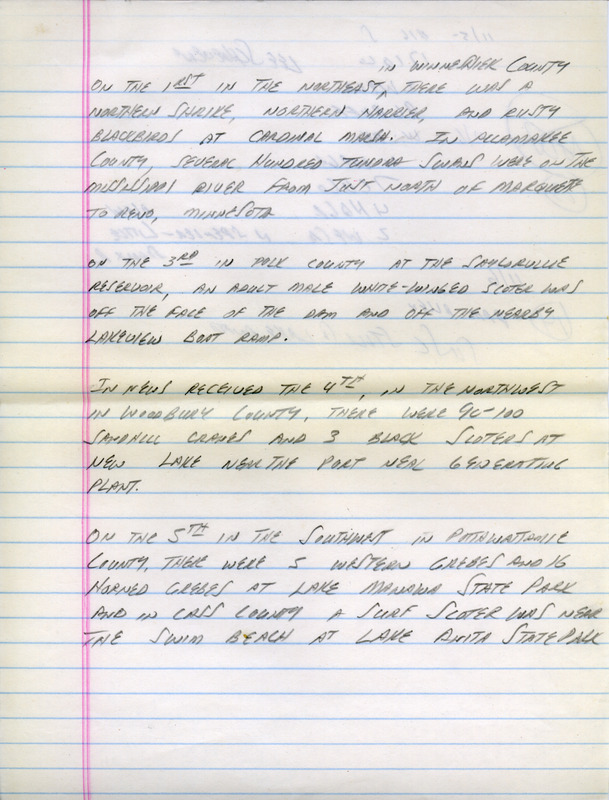 IN WINNESHIEK COUNTY
ON THE 1RST IN THE NORTHEAST, ^ THERE WAS A
NORTHERN SHRIKE, NORTHERN HARRIER, AND RUSTY
BLACKBIRDS AT CARDINAL MARSH. IN ALLAMAKEE
COUNTY, SEVERAL HUNDRED TUNDRA SWANS WERE ON THE
MISSISSIPPI RIVER FROM JUST NORTH OF MARQUETTE
TO RENO, MINNESOTA
ON THE 3RD IN POLK COUNTY AT THE SAYLORVILLE
RESERVOIR, AN ADULT MALE WHITE-WINGED SCOTER WAS
OFF THE FACE OF THE DAM AND OFF THE NEARBY
LAKEVIEW BOAT RAMP.
IN NEWS RECEIVED THE 4TH, IN THE NORTHWEST
IN WOODBURY COUNTY, THERE WERE 90-100
SANDHILL CRANES AND 3 BLACK SCOTERS AT
NEW LAKE NEAR THE PORT NEAL GENERATING
PLANT.
ON THE 5TH IN THE SOUTHWEST IN POTTAWATTAMIE
COUNTY, THERE WERE 5 WESTERN GREBES AND 16
HORNED GREBES AT LAKE MANAWA STATE PARK
AND IN CASS COUNTY A SURF SCOTER WAS NEAR
THE SWIM BEACH AT LAKE ANITA STATE PARK